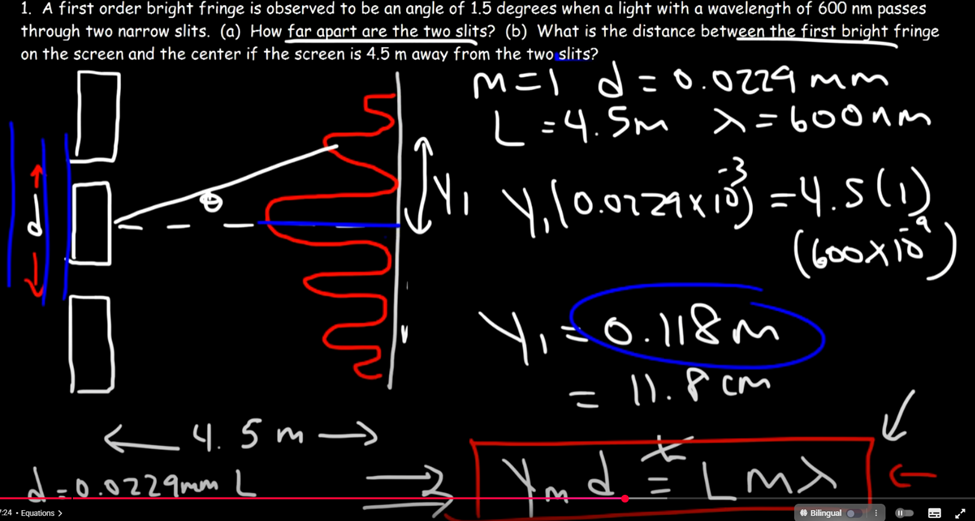 1. A first order bright fringe is observed to be an angle of 1.5 degrees when a light with a wavelength of 600 nm passes
through two narrow slits. (a) How far apart are the two slits? (b) What is the distance between the first bright fringe
on the screen and the center if the screen is 4.5 m away from the two slits?
m=1 d=0.0229mm
L=4.5m λ=600nm
d
θ
Y₁
Y₁(0.0229×10⁻³)=4.5(1)
(600×10⁻⁹)
Y₁=0.118m
=11.8cm
4.5m
d=0.0229mm L
Yₘd≅Lmλ
:24 • Equations >
Bilingual